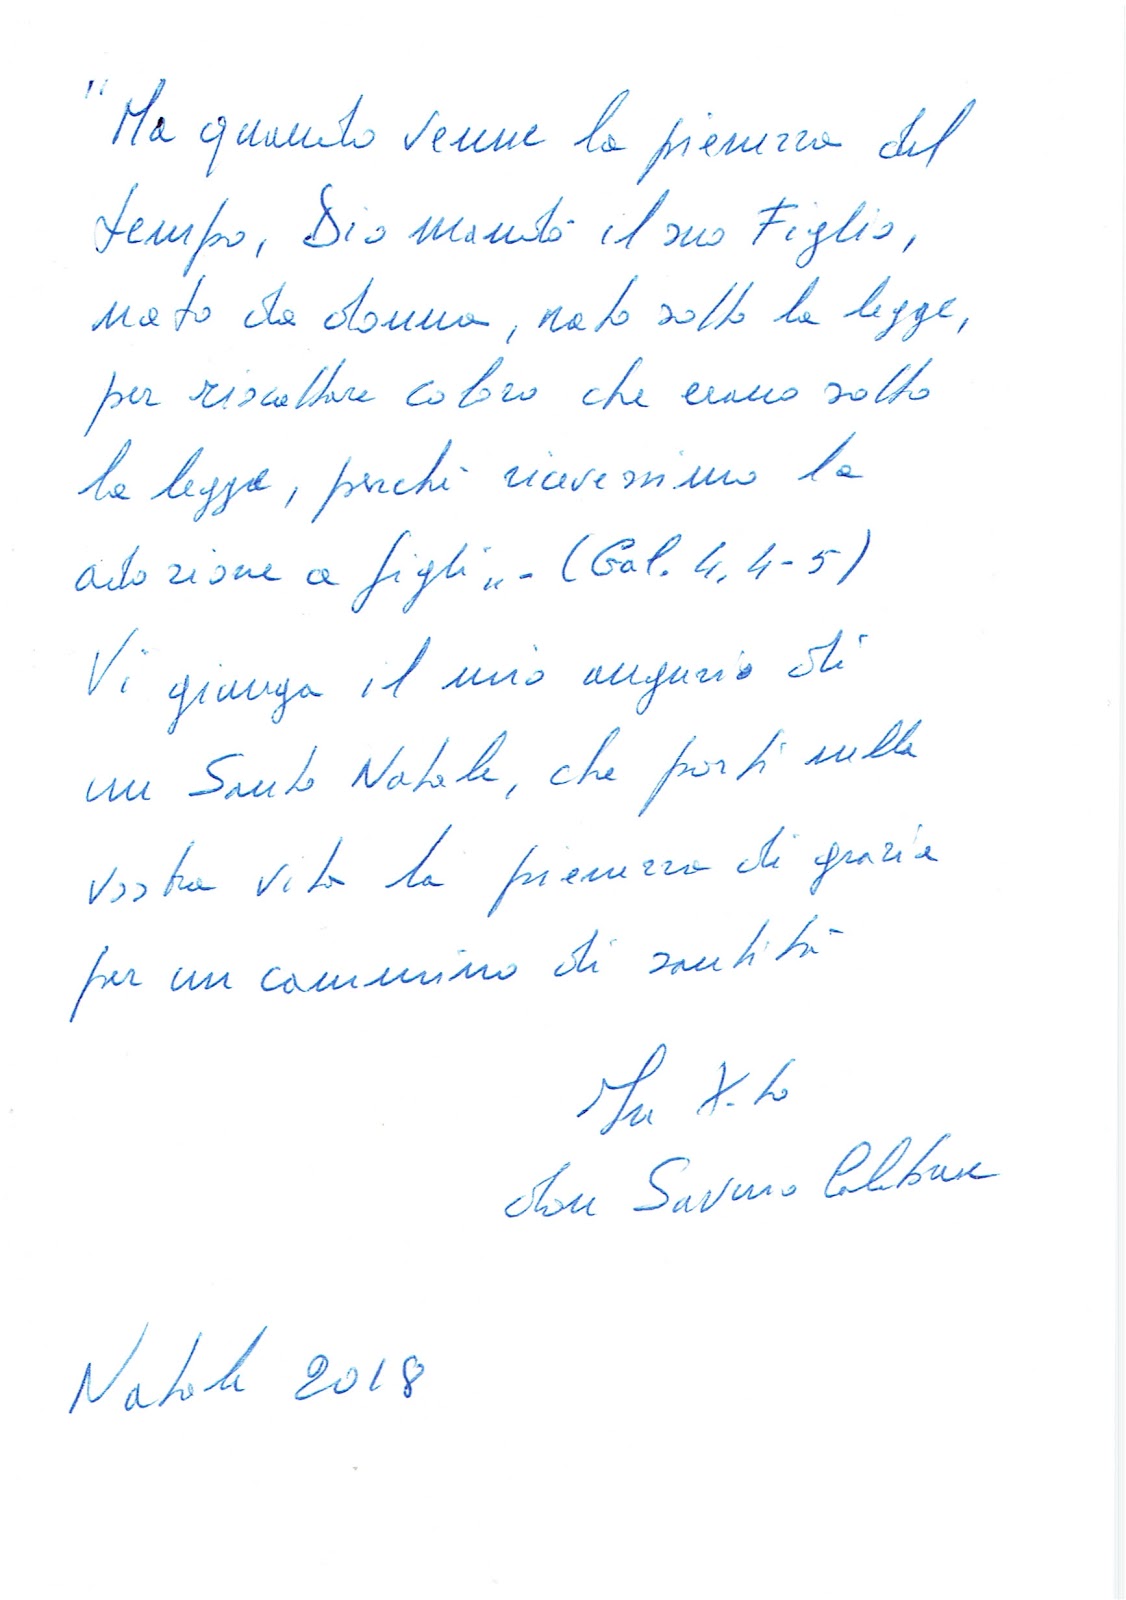 "Ma quando venne la pienezza del
tempo, Dio mandò il suo Figlio,
nato da donna, nato sotto la legge,
per riscattare coloro che erano sotto
la legge, perché ricevessimo la
adozione a figli„- (Gal. 4, 4-5)
Vi giunga il mio augurio di
un Santo Natale, che porti nella
vostra vita la pienezza di grazia
per un cammino di santità
In X.to
don Savino
Natale 2018